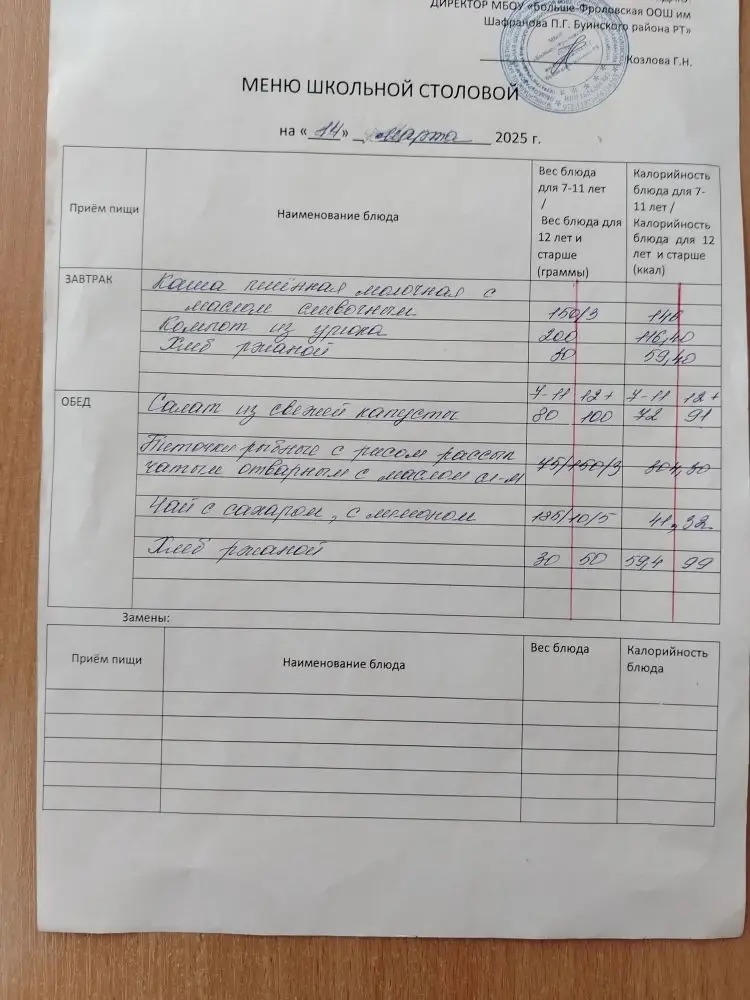 ДИРЕКТОР МБОУ «Больше-Фроловская ООШ им
Шафранова П.Г. Буинского района РТ»
Козлова Г.Н.
МЕНЮ ШКОЛЬНОЙ СТОЛОВОЙ
на «14» марта 2025 г.
Приём пищи
Наименование блюда
Вес блюда
для 7-11 лет
/
Вес блюда для
12 лет и
старше
(граммы)
Калорийность
блюда для 7-
11 лет /
Калорийность
блюда для 12
лет и старше
(ккал)
ЗАВТРАК
Каша пшённая молочная с
маслом сливочным 150/3 146
Компот из урюка 200 116,40
Хлеб ржаной 30 59,40
7-11 12+ 7-11 12+
ОБЕД
Салат из свежей капусты 80 100 72 91
рыбные с рисом рассып
чатым отварным с маслом сл-м 75/150/3
Чай с сахаром, с лимоном 185/10/5 41,32
Хлеб ржаной 30 50 59,4 99
Замены:
Приём пищи
Наименование блюда
Вес блюда
Калорийность
блюда